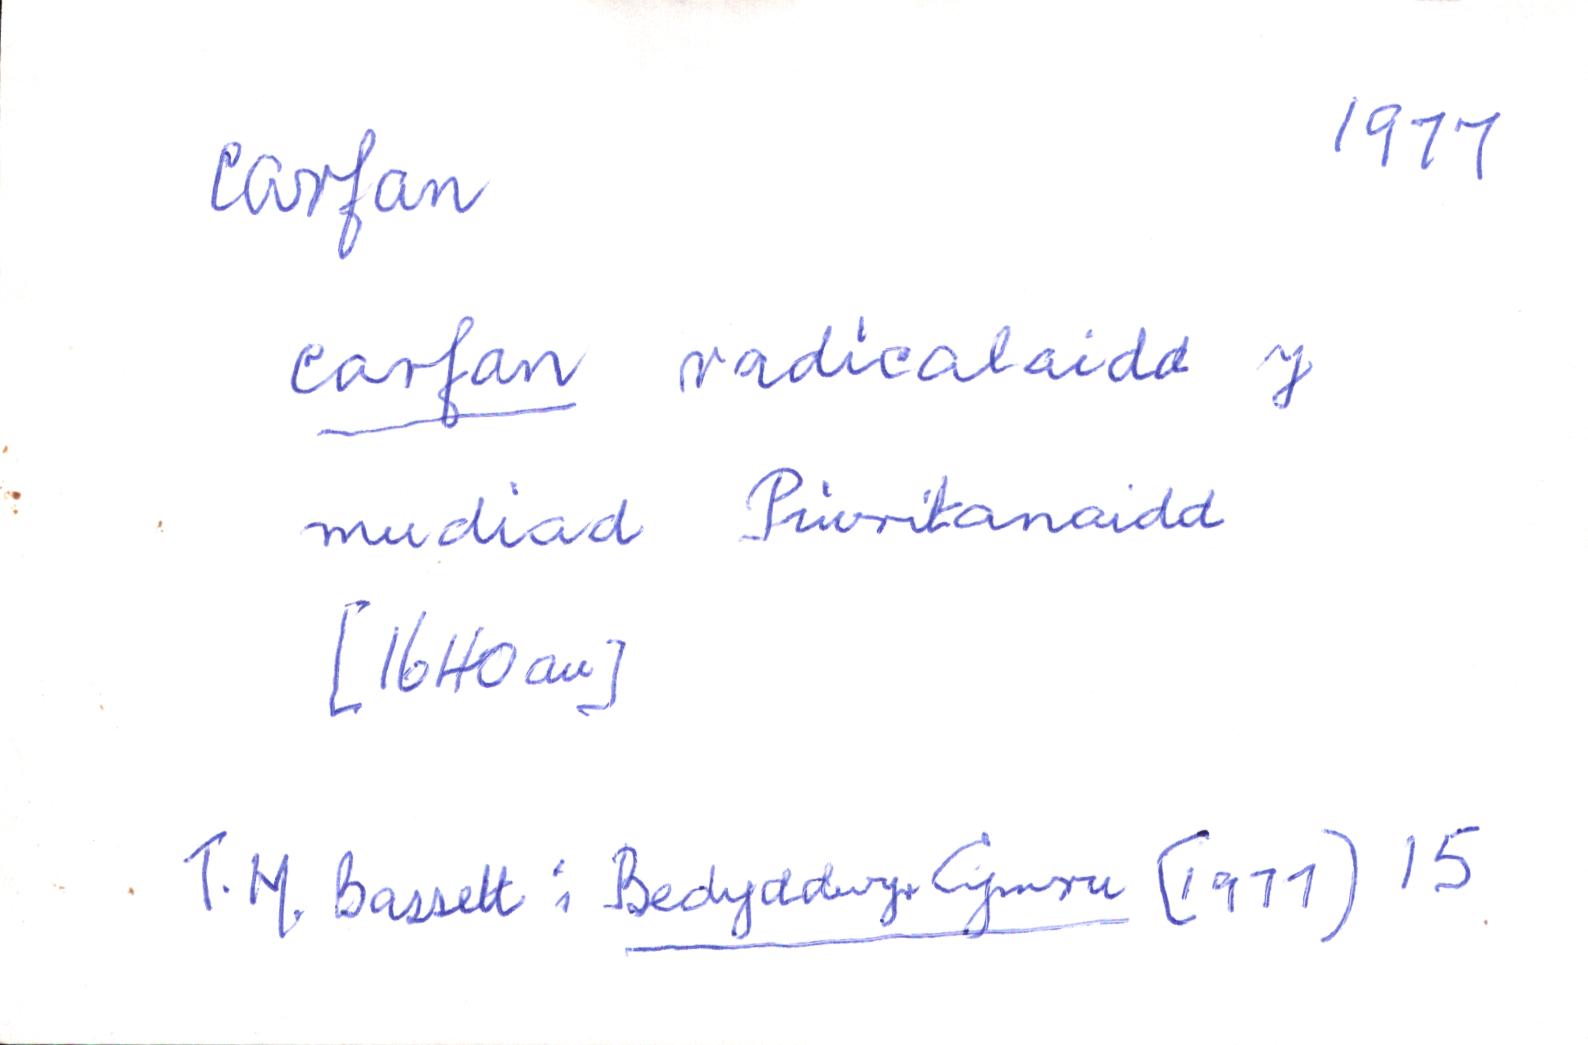 carfan 1977
carfan radicalaidd y
mudiad Piwritanaidd
[1640au]
T. M. Bassett : Bedyddwyr Cymru (1977) 15